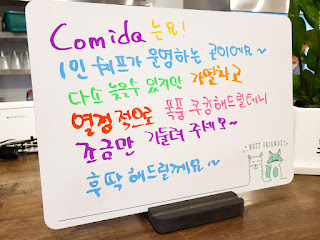 Comida는요!
1인 쉐프가 운영하는 곳이에요~
다소 늦을수 있지만
열정적으로 폭풍 쿠킹해드릴테니
조금만 기둘려 주세요~
후딱 해드릴께요~
BEST FRIENDS